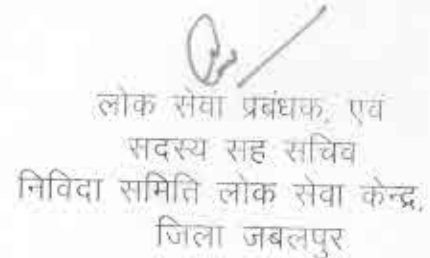 लोक सेवा प्रबंधक, एवं
सदस्य सह सचिव
निविदा समिति लोक सेवा केन्द्र,
जिला जबलपुर